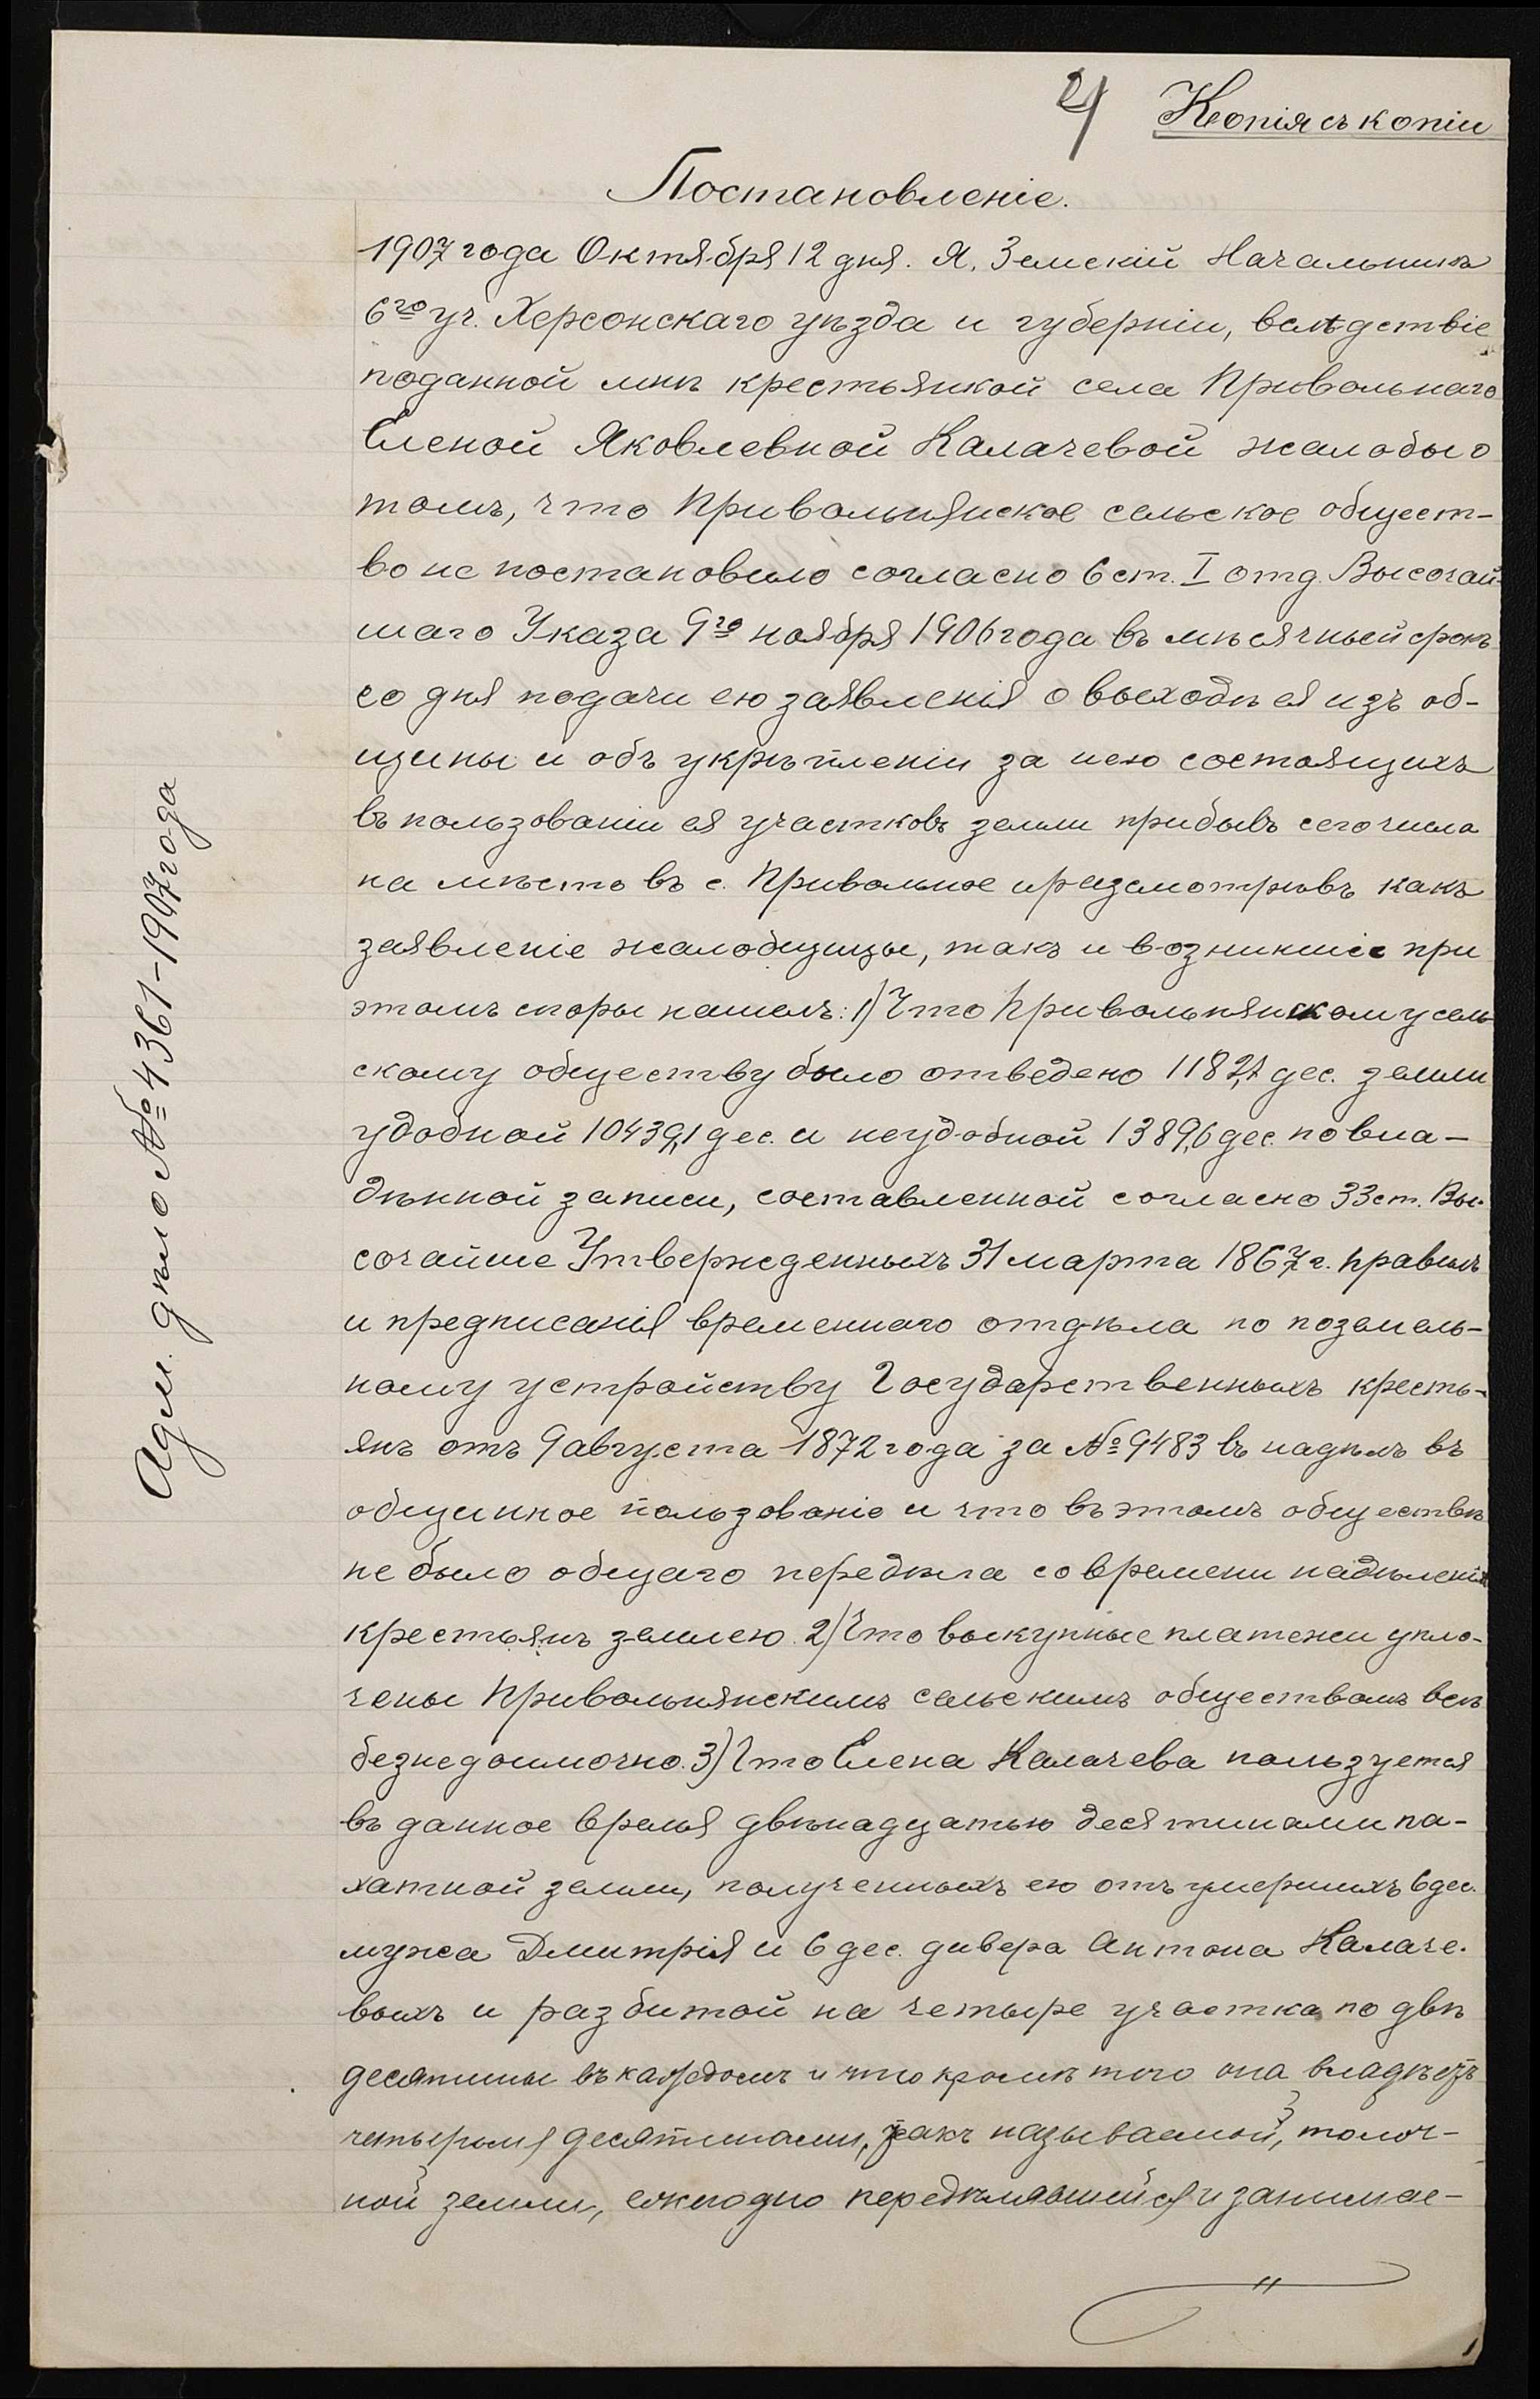 21 Копія съ копіи
Постановленіе.
1907 года Октября 12 дня. Я, Земскій Начальникъ
6го уч. Херсонскаго уѣзда и губерніи, вслѣдствіе
поданной мнѣ крестьянкой села Привольнаго
Еленой Яковлевной Калачевой жалобы о
томъ, что Привольнянское сельское общест-
во не постановило согласно 6 ст. I отд. Высочай-
шаго Указа 9го ноября 1906 года въ мѣсячный срокъ
со дня подачи ею заявленія о выходѣ ея изъ об-
щины и объ укрѣпленіи за нею состоящихъ
въ пользованіи ея участковъ земли прибывъ сего числа
на мѣсто въ с. Привольное и разсмотрѣвъ какъ
заявленіе жалобщицы, такъ и возникшіе при
этомъ споры нашелъ: 1) Что Привольнянскому сель
скому обществу было отведено дес. земли
удобной 10439,1 дес. и неудобной 1389,6 дес. по вла-
дѣнной записи, составленной согласно 33 ст. Вы-
сочайше Утвержденныхъ 31 марта 1867 г. правилъ
и предписанія временнаго отдѣла по поземель-
ному устройству Государственныхъ кресть-
янъ отъ 9 августа 1872 года за № 9483 въ надѣлъ въ
общинное пользованіе и что въ этомъ обществѣ
не было общаго передѣла со времени надѣленія
крестьянъ землею. 2) Что выкупные платежи упло-
чены Привольнянскимъ сельскимъ обществомъ всѣ
безнедоимочно. 3) Что Елена Калачева пользуется
въ данное время двѣнадцатью десятинами па-
хатной земли, полученныхъ ею отъ умершихъ 6 дес.
мужа Дмитрія и 6 дес. дивера Антона Калаче-
выхъ и разбитой на четыре участка по двѣ
десятины въ каждомъ и что кромѣ того она владѣетъ
четырьмя десятинами, такъ называемой, толоч-
ной земли, ежегодно передѣлявшейся и занимае-
Адм. дѣло № 4361-1907 года